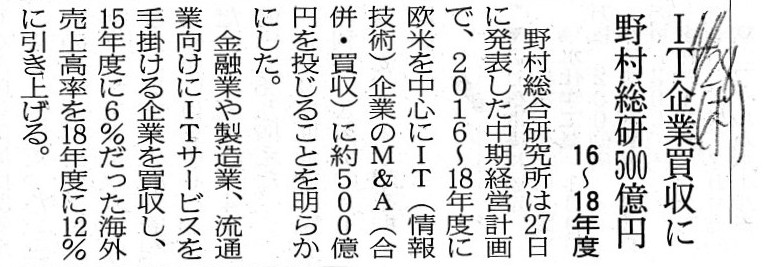 IT企業買収に
野村総研500億円
16〜18年度
野村総合研究所は27日
に発表した中期経営計画
で、2016〜18年度に
欧米を中心にIT（情報
技術）企業のM&A（合
併・買収）に約500億
円を投じることを明らか
にした。
金融業や製造業、流通
業向けにITサービスを
手掛ける企業を買収し、
15年度に6%だった海外
売上高率を18年度に12%
に引き上げる。